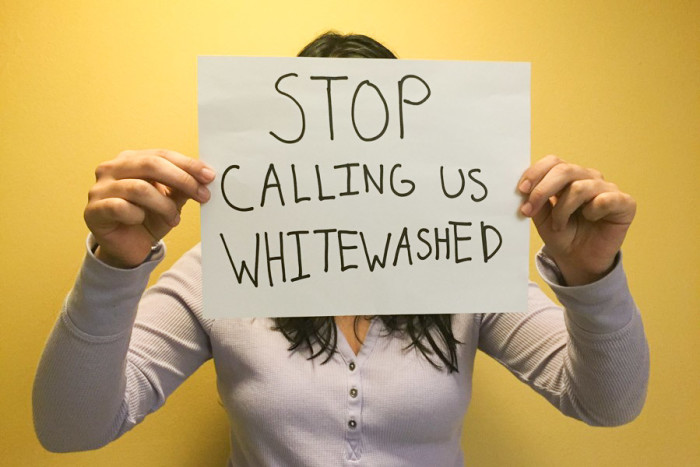 STOP
CALLING US
WHITEWASHED